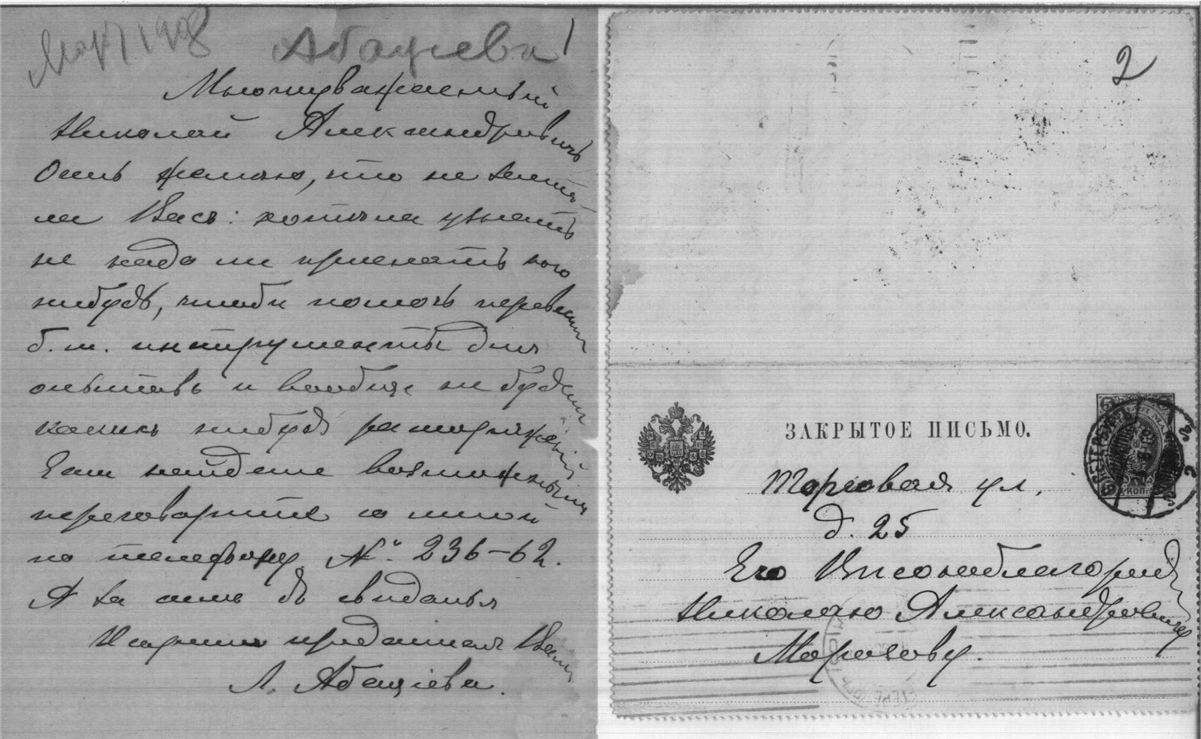 Март 1908 Абациева 1
Многоуважаемый
Николай Александровичъ
Очень жалею, что не заста-
ла Васъ: хотела узнать
не надо ли прислать кого
нибудь, чтобы помочь перевезти
б. м. инструменты для
опытовъ и вообще не будетъ
какихъ нибудь распоряжений
Если найдете возможнымъ
переговорите со мной
по телефону № 236-62.
А за симъ до свиданья
Искренно преданная Вамъ
Л. Абациева.
2
ЗАКРЫТОЕ ПИСЬМО.
Торговая ул.
д. 25
Его Высокоблагородію
Николаю Александровичу
Морозову.